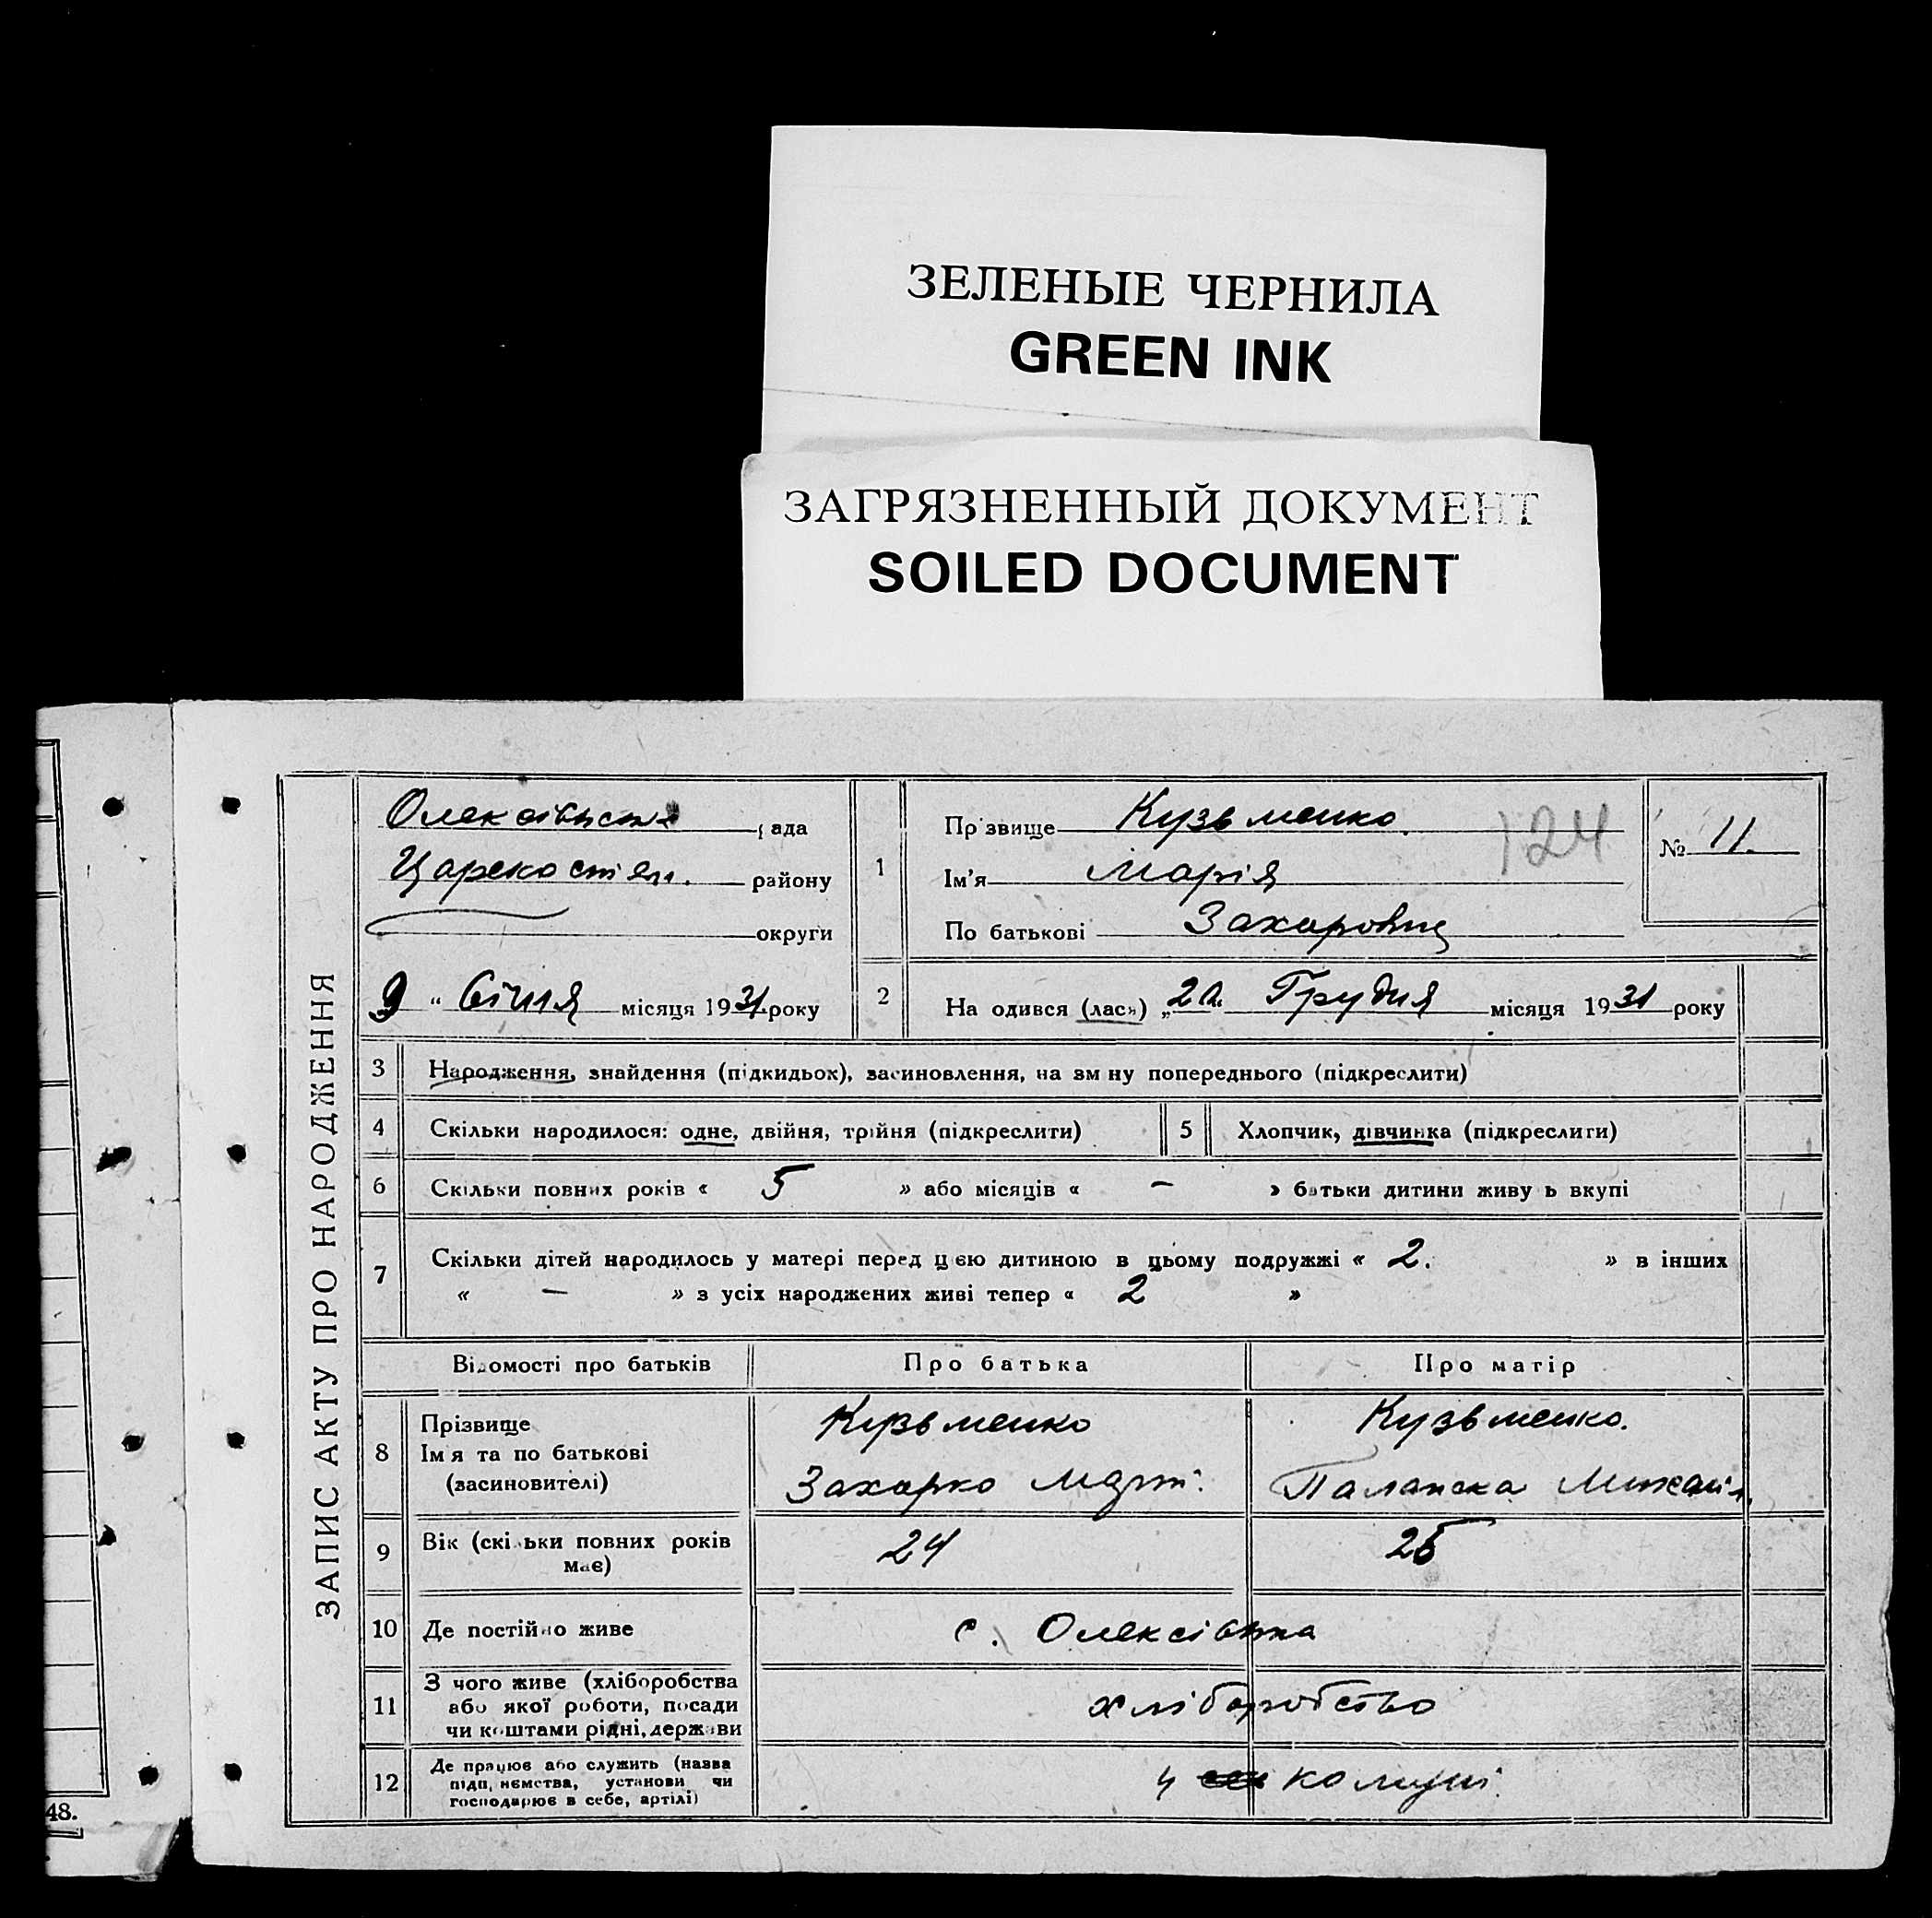 ЗЕЛЕНЫЕ ЧЕРНИЛА
GREEN INK
ЗАГРЯЗНЕННЫЙ ДОКУМЕНТ
SOILED DOCUMENT
ЗАПИС АКТУ ПРО НАРОДЖЕННЯ
рада
района
округи
9 " Січня місяця 1931 року
1
Прізвище Кузьменко.
124
Ім'я Марія
По батькові Захаровна
№ 11.
2
На одився (лася) „ Грудня місяця 1931 року
3 Народження, знайдення (підкидьох), засиновлення, на зм ну попереднього (підкреслити)
4 Скільки народилося: одне, двійня, трійня (підкреслити) 5 Хлопчик, дівчинка (підкреслити)
6 Скільки повних років « 5 » або місяців « — » батьки дитини живу ь вкупі
7 Скільки дітей народилось у матері перед цією дитиною в цьому подружжі « 2. » в інших
« — » з усіх народжених живі тепер « 2 »
Відомості про батьків Про батька Про матір
8 Прізвище
Імя та по батькові
(засиновителі)
Кузьменко
Захарко Март.
Кузьменко.
Михайл.
9 Вік (скі ьки повних років
має)
24
25
10 Де постійно живе с. Олексівка
11 З чого живе (хліборобства
або якої роботи, посади
чи коштами рідні, держави
хліборобство
12 Де працює або служить (назва
підп, нємства, установи чи
господарює в себе, артілі)
у комуні.
48.